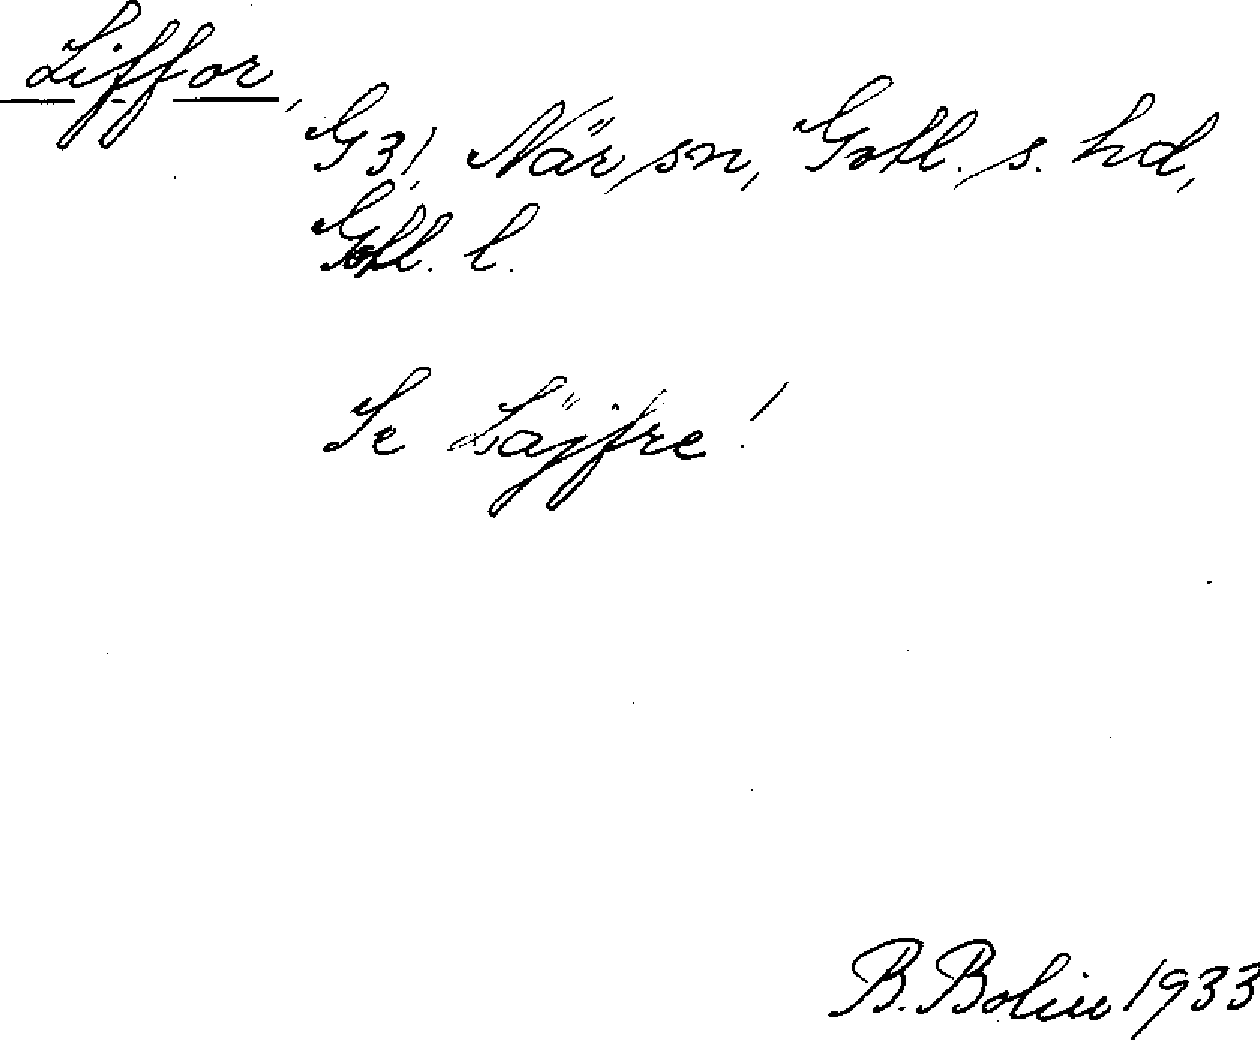 Liffor,
G3! När sn, Gotl. s. hd,
Gotl. l.
Se Läjfre!
B. Bolin 1933